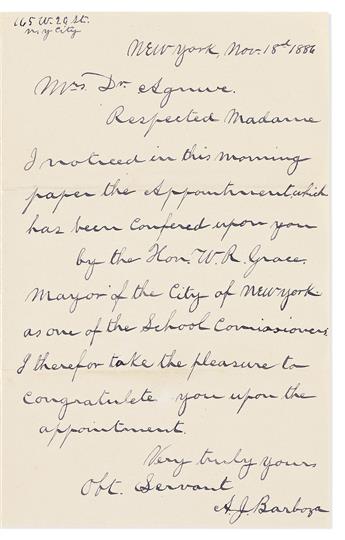 165 W. 29 St.
N.Y City
New York, Nov. 18d 1886
Mrs. Dr. Agnuve.
Respected Madame
I noticed in this morning
paper the Appointment, which
has been Confered upon you
by the Hon. W. R. Grace.
Mayor of the City of New York
as one of the School Comissioners,
I therefor take the pleasure to
Congratulete you upon the
appointment.
Very truly yours
Obt. Servant
A. J. Barboza